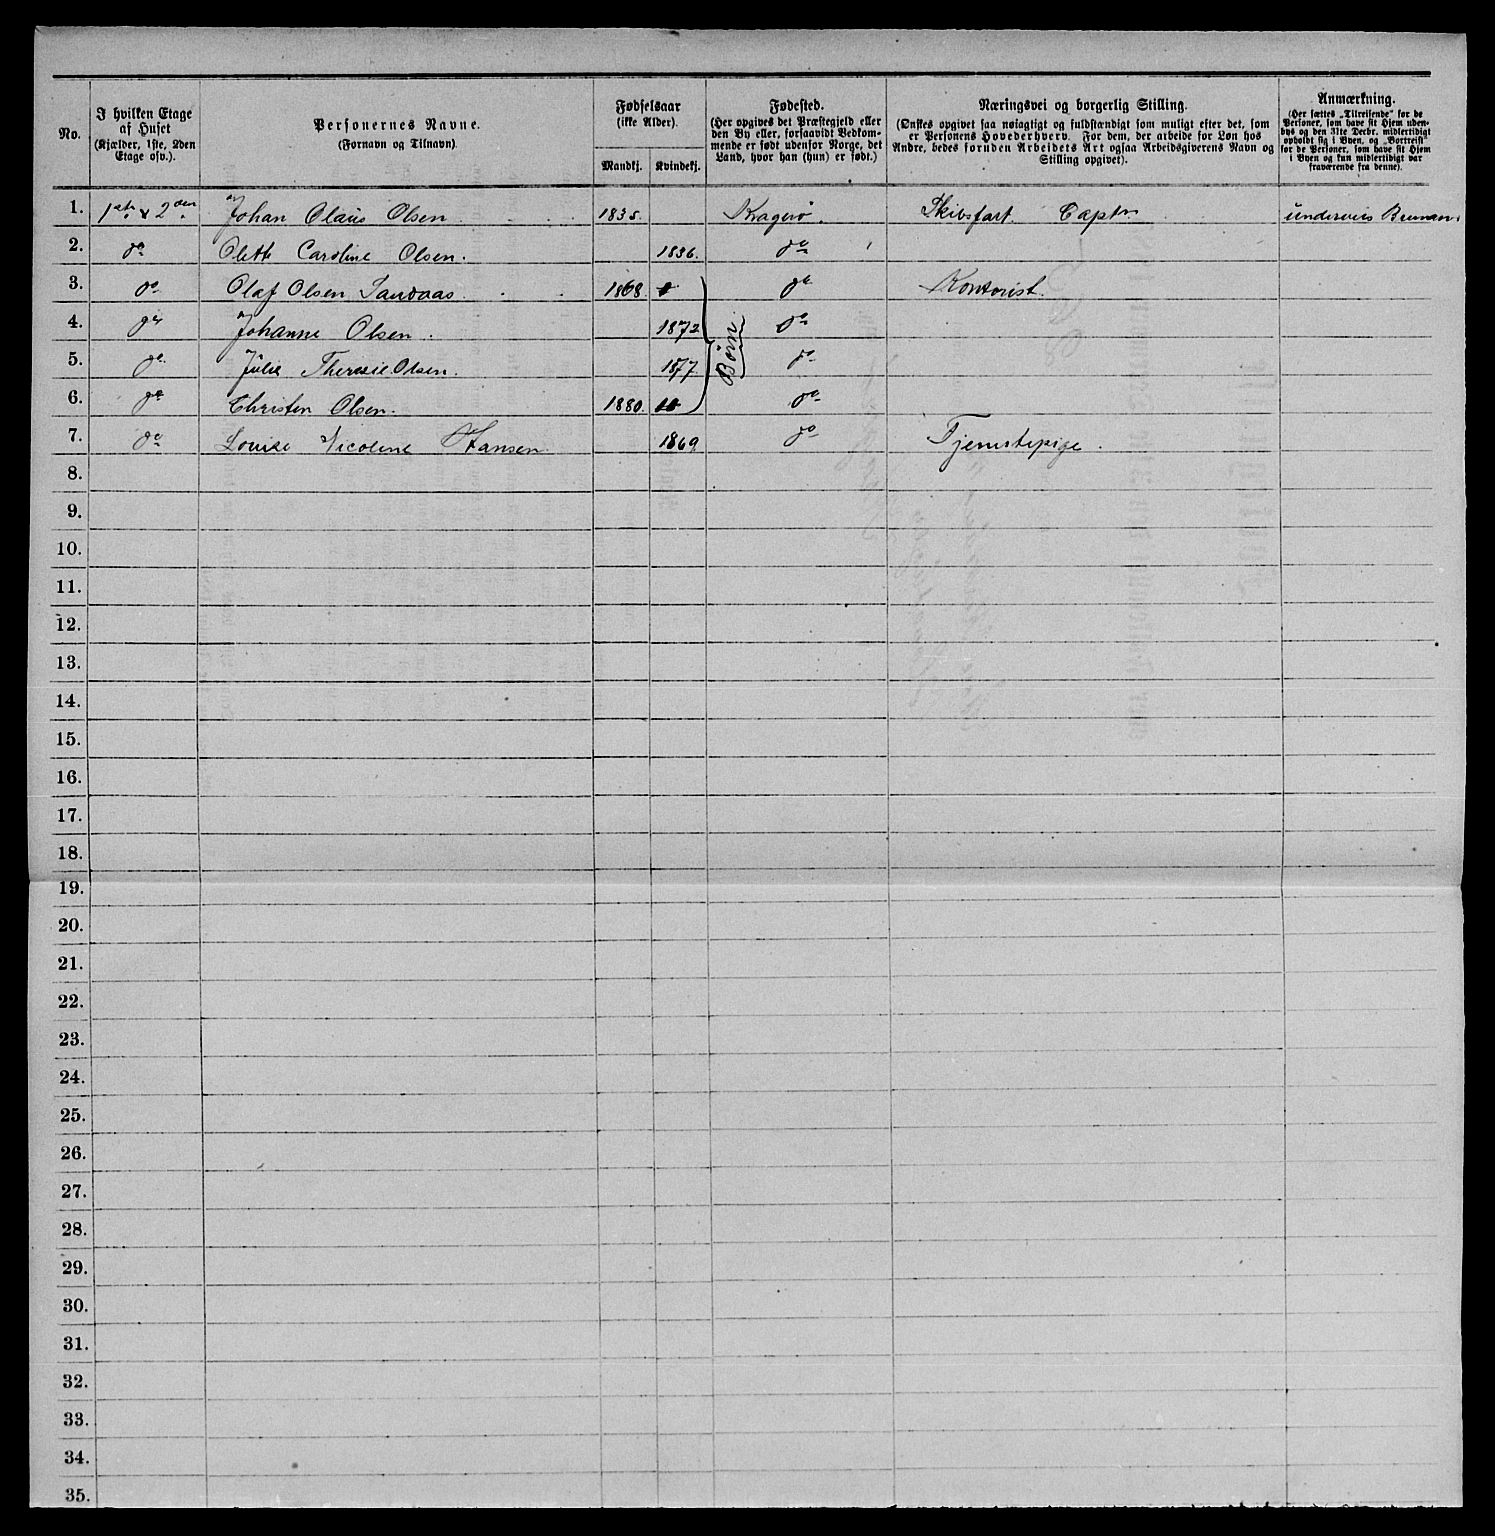 No.
I hvilken Etage
af Huset
(Kjælder, 1ste, 2den
Etage osv.).
Personernes Navne.
(Fornavn og Tilnavn)
Fødselsaar
(ikke Alder).
Mandkj. Kvindekj.
Fødested.
(Her opgives det Præstegjeld eller
den By eller, forsaavidt Vedkom-
mende er født udenfor Norge, det
Land, hvor han (hun) er født.)
Næringsvei og borgerlig Stilling.
(Ønskes opgivet saa nøiagtigt og fuldstændigt som muligt efter det, som
er Personens Hovederhverv. For dem, der arbeide for Løn hos
Andre, bedes foruden Arbeidets Art ogsaa Arbeidsgiverens Navn og
Stilling opgivet).
Anmærkning.
(Her sættes „Tilreisende“ for de
Personer, som have sit Hjem uden-
bys og den 31te Decbr. midlertidigt
opholdt sig i Byen, og „Bortreist“
for de Personer, som have sit Hjem
i Byen og kun midlertidigt var
fraværende fra denne).
1. 1ste & 2den Johan Claus Olsen 1835. Kragerø. Skibsfart. Captn underveis
2. do Olette Caroline Olsen. 1836. do
3. do Olaf Olsen Sandaas 1868. do Kontorist.
4. do Johanne Olsen. 1872 do
Børn
5. do Julie Theresie Olsen. 1877 do
6. do Christen Olsen. 1880. do
7. do Louise Nicoline Hansen. 1869 do Tjenestepige.
8.
9.
10.
11.
12.
13.
14.
15.
16.
17.
18.
19.
20.
21.
22.
23.
24.
25.
26.
27.
28.
29.
30.
31.
32.
33.
34.
35.